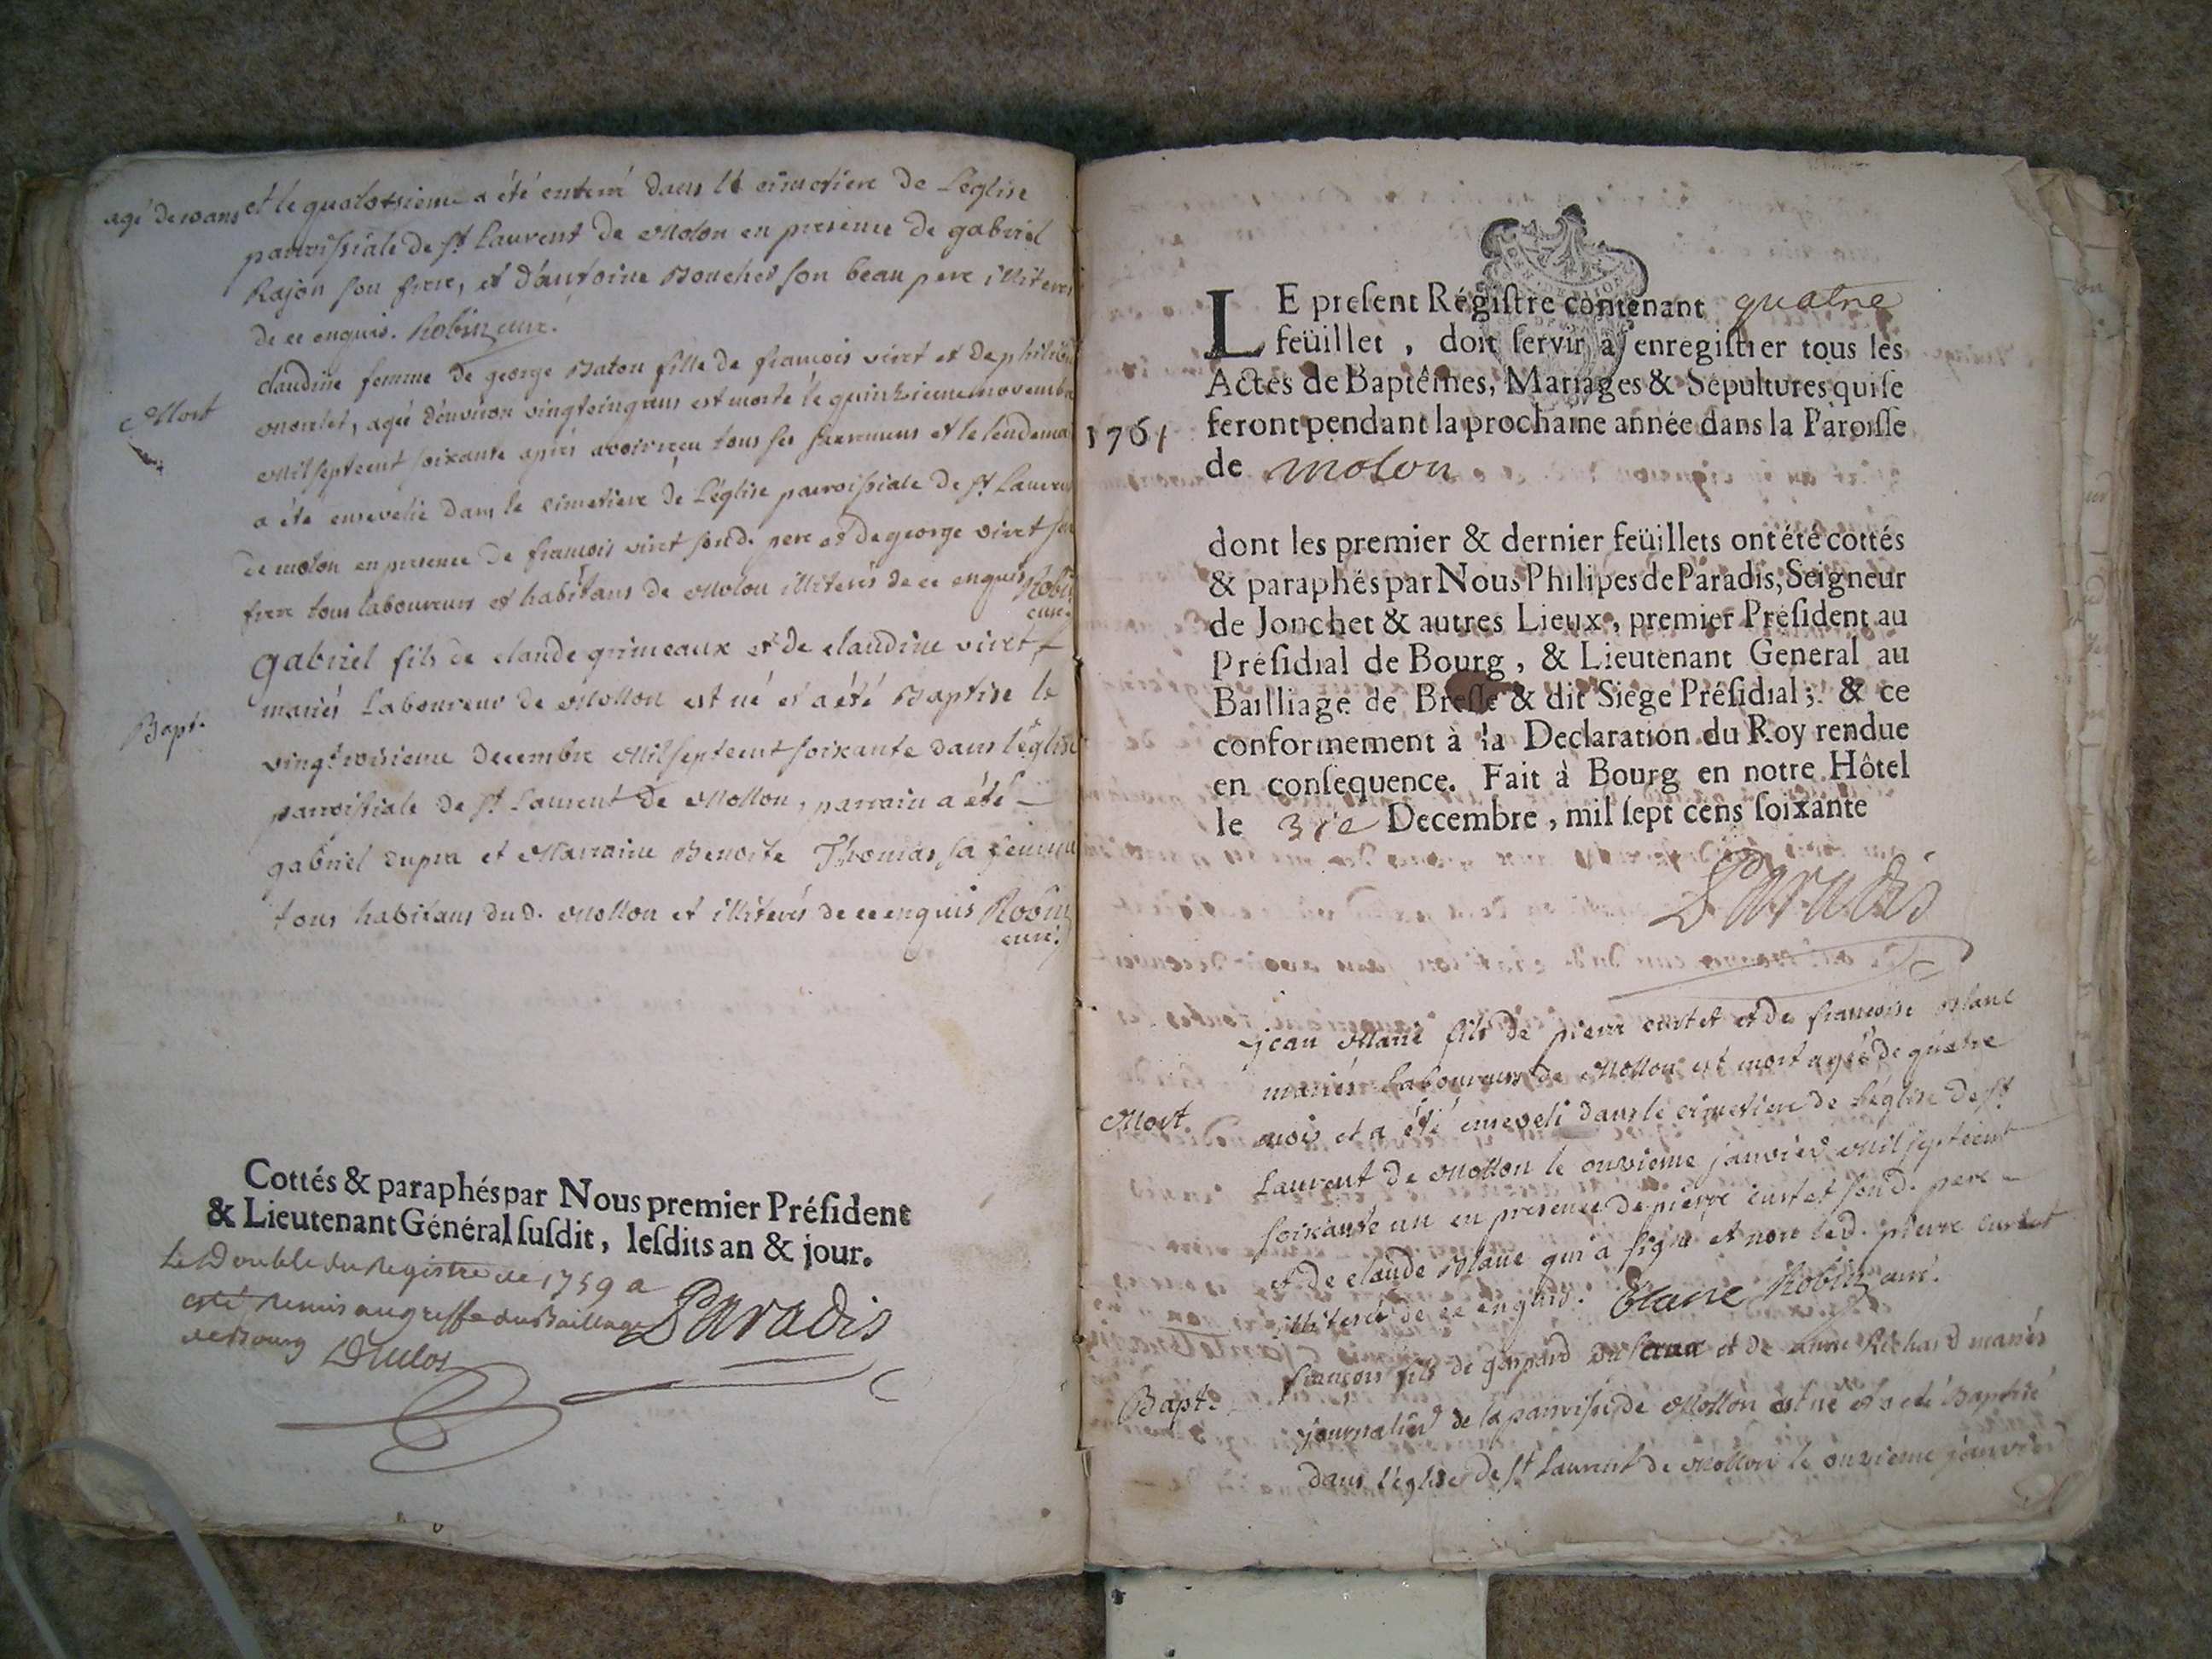 et le quatorsieme a été enterré dans le cimetiere de L'église
agé de 10 ans
parroissiale de st Laurent de Molon en presence de gabriel
Rajon son frere, et d'antoine Bouchet son beau pere illiterés
de ce enquis. Robin curé.
claudine femme de george Baton fille de françois viret et de philib
Mort
agée d'environ vingtcinq ans est morte le quinzieme novembre
Milseptcent soixante après avoir reçu tous ses sacremens et le lendemai
a été ensevelie dans le cimetiere de L'église parroissiale de st Lauren
de molon en presence de francois viret sond. pere et de george viret son
frere tous laboureurs et habitans de Molon illiterés de ce enquis Robin
curé.
gabriel fils de claude grimeaux et de claudine viret
mariés Laboureur de Mollon est né et a été Baptisé le
Bapt.
vingt troisieme Decembre Milseptcent soixante dans l'église
parroissiale de st Laurent de Mollon, parrain a été
gabriel Dupra et Marraine Benoite Thomas sa femme
tous habitans dud. Mollon et illiterés de ce enquis Robin
curé.
Cottés & paraphés par Nous premier Président
& Lieutenant Général susdit, lesdits an & jour.
Le Double du Registre de 1759 a
esté remis au greffe du Baillage
de Bourg
Paradis
LE present Régistre contenant quatre
feüillet, doit servir à enregistrer tous les
Actes de Baptêmes, Mariages & Sepultures qui se
1761 feront pendant la prochaine année dans la Paroisse
de molon
dont les premier & dernier feüillets ont été cottés
& paraphés par Nous Philipes de Paradis, Seigneur
de Jonchet & autres Lieux, premier Président au
Présidial de Bourg, & Lieutenant General au
Bailliage de Bresse & dit Siege Présidial; & ce
conformement à la Declaration du Roy rendue
en consequence. Fait à Bourg en notre Hôtel
le 31e Decembre, mil sept cens soixante
Paradis
jean Marie fils de pierre curtet et de francoise Blanc
mariés Laboureurs de Mollon est mort agé de quatre
Mort
mois et a été enseveli dans le cimetiere de L'église de st
Laurent de Mollon le onzieme janvier Milseptcent
soixante un en presence de pierre curtet sond. pere
et de claude Blanc qui a signé et non led. pierre curtet
illiteré de ce enquis. Blanc Robin curé.
francois fils de gaspard et de anne Richard mariés
Bapt.
journalier de la parroisse de Mollon est né et a eté Baptisé
dans l'église de st Laurent de Mollon le onzieme janvier